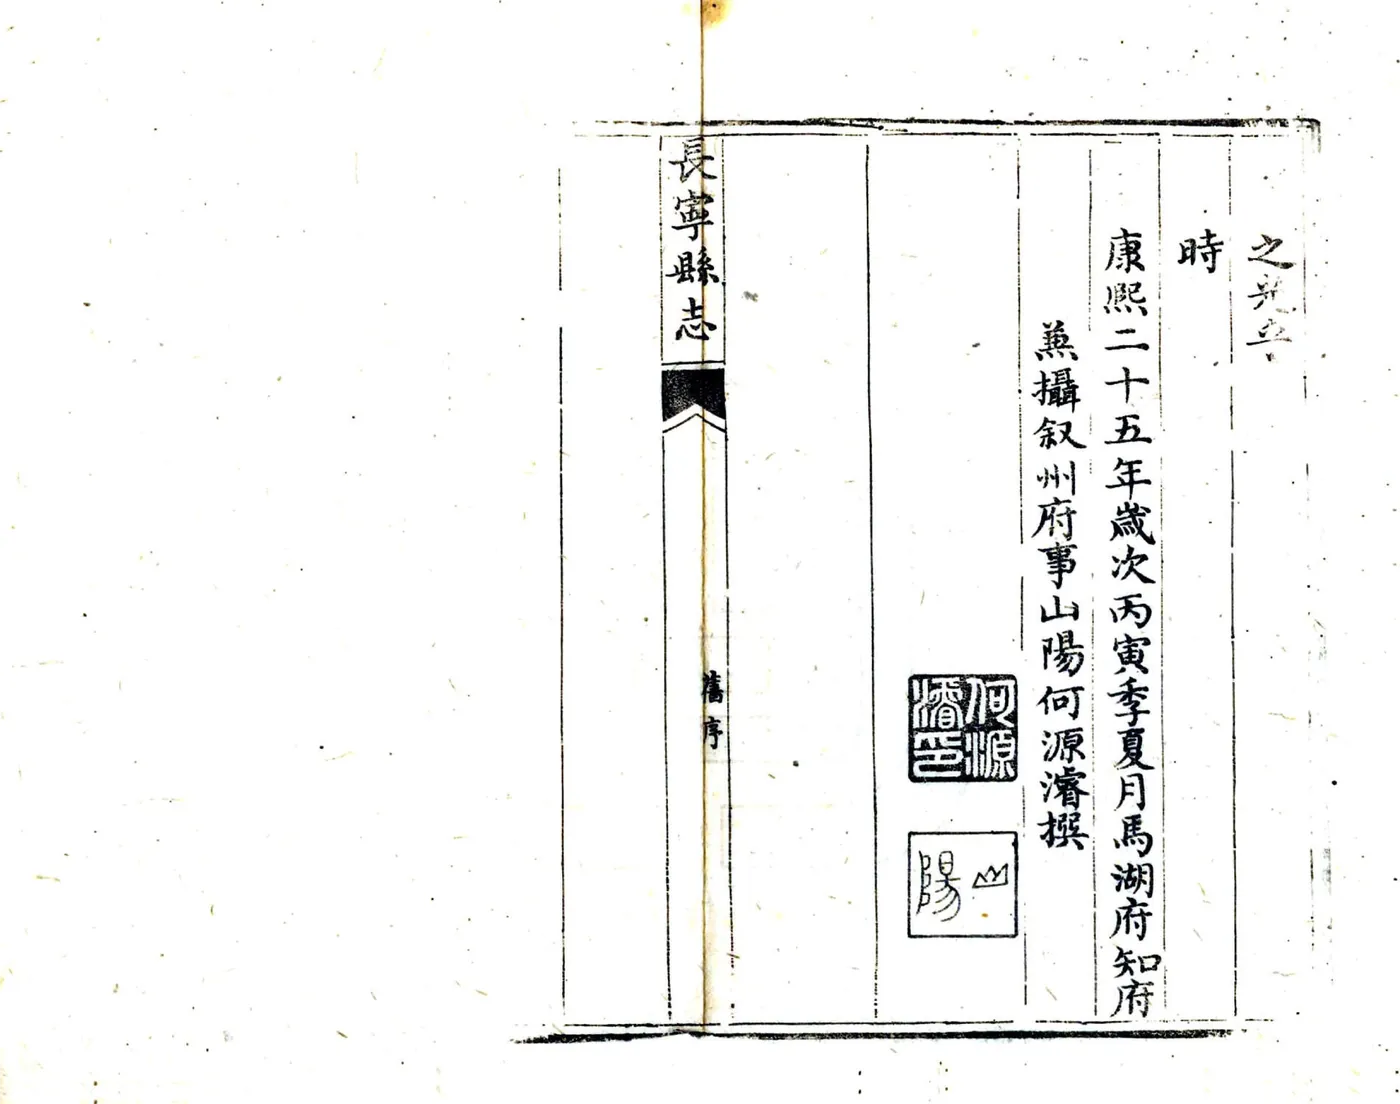 之
時
康熙二十五年歲次丙寅季夏月馬湖府知府
兼攝叙州府事山陽何源濬撰
何源
濬印
山
陽
長寧縣志
舊序